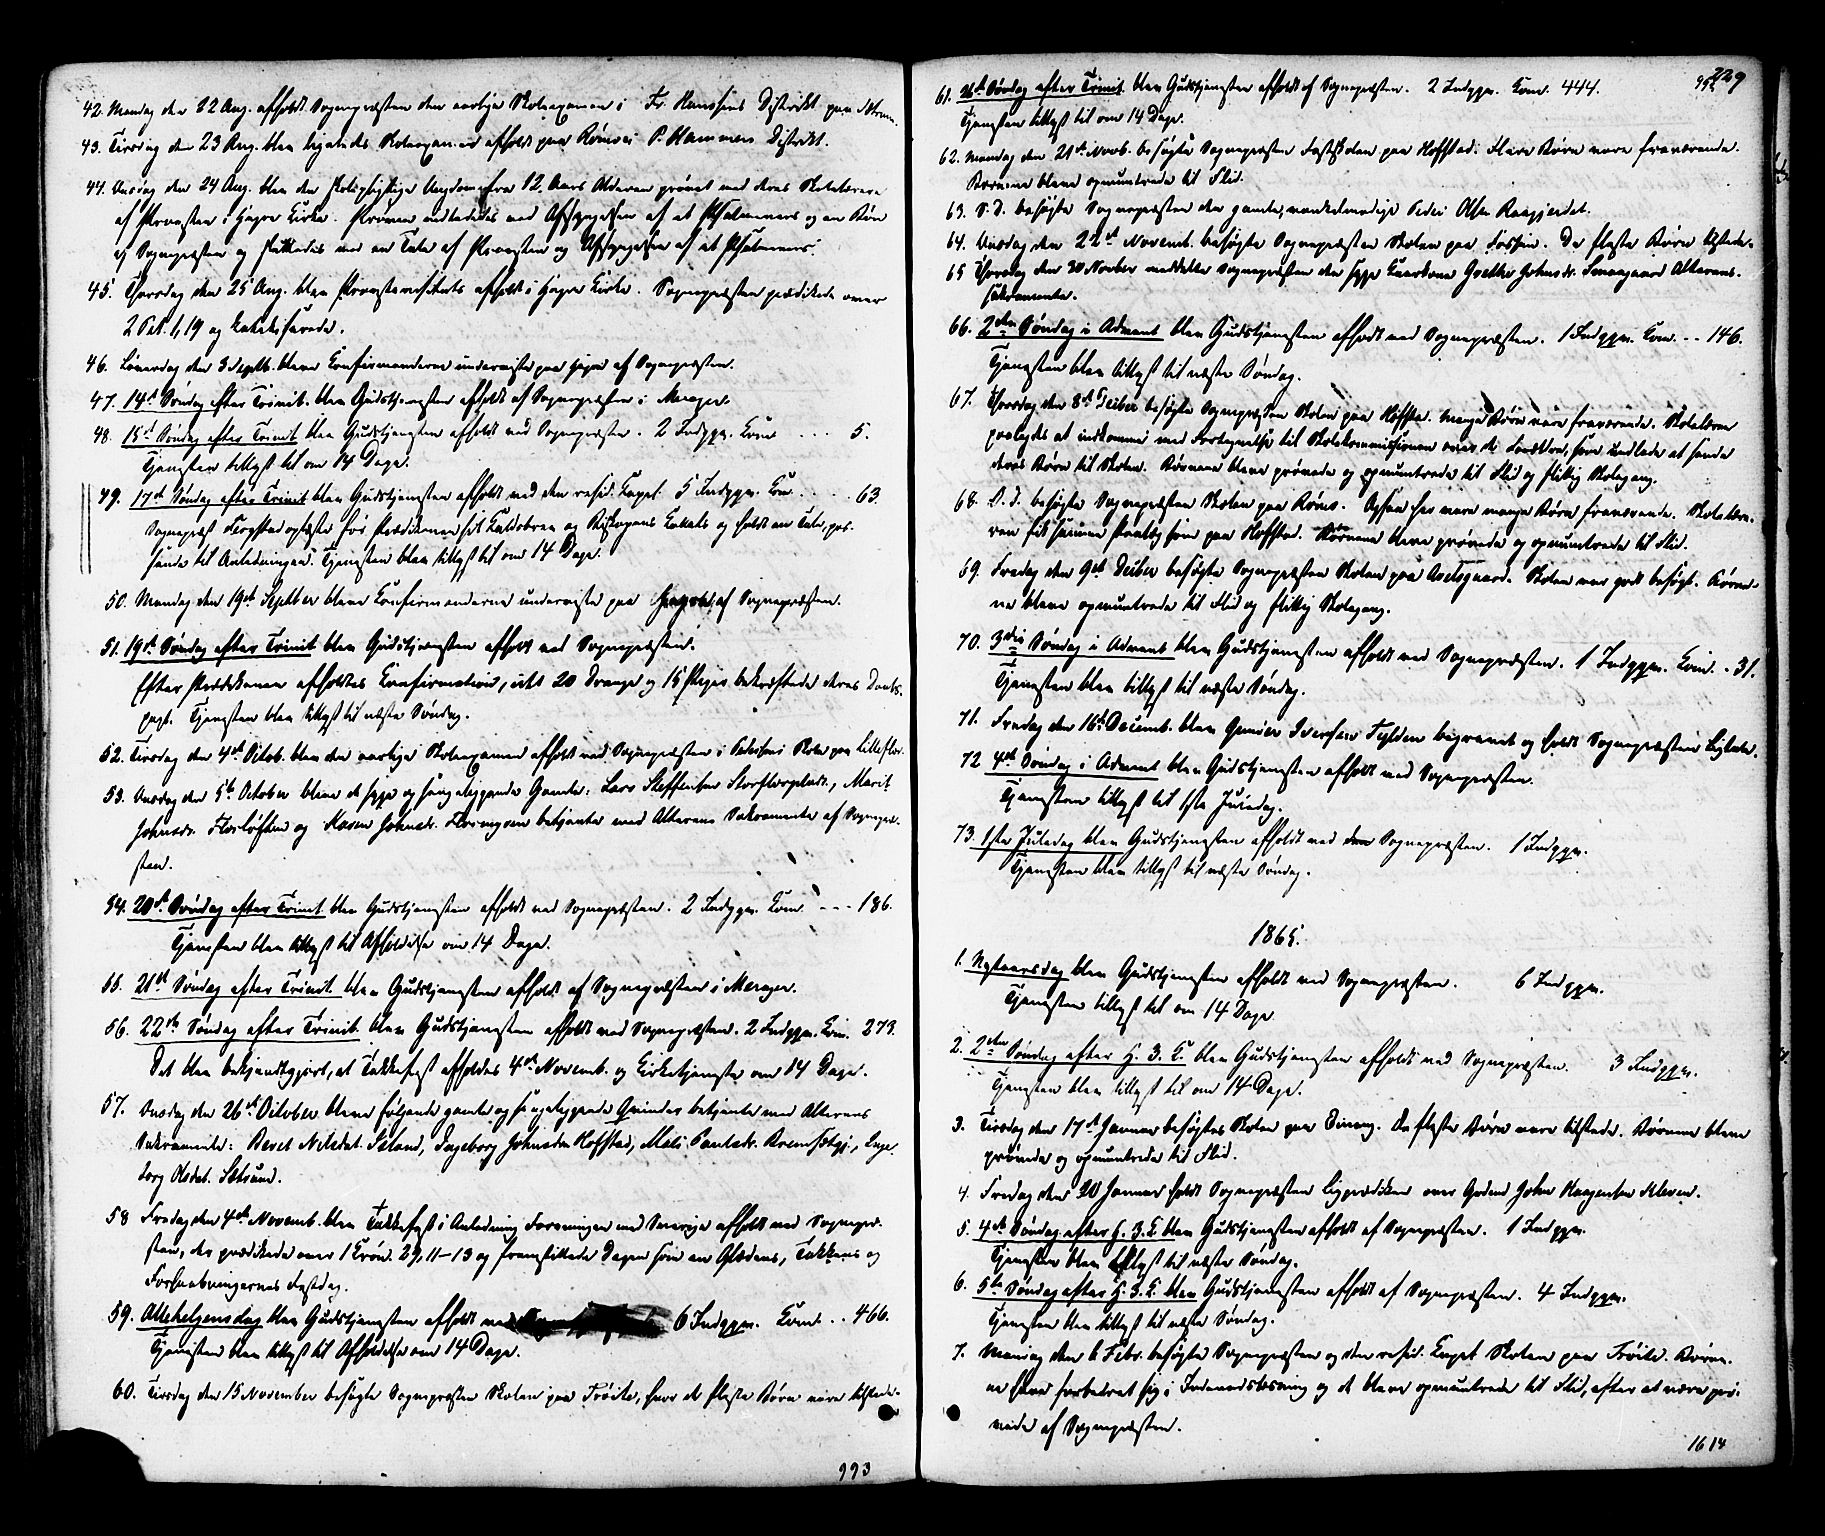 42. Mandag den 22 Aug. afholdt Sognepræsten den aarlige Skoleexamen i Fr. Hansens Distrikt paa
43. Tirsdag den 23 Aug. blev ligeledes Skoleexamen afholdt paa P. Hammers Distrikt.
44. Onsdag den 24 Aug. blev den skolepligtige Ungdom fra 12 Aars Alderen prøvet med deres Skolelærere
af Provsten i Hegre Kirke. Prøven indlededes med Afsyngelsen af et Psalmevers og en Bøn
af Sognepræsten og sluttedes med en Tale af Provsten og Afsyngelsen af et Psalmevers.
45. Thorsdag den 25 Aug. blev Provstevisitats afholdt i Hegre Kirke. Sognepræsten prædikede over
2 Pet. 1,19 og katekiserede.
46. Løverdag den 3 Septb. bleve Confirmanderne underviste paa af Sognepræsten.
47. 14de Søndag efter Trinit. blev Gudstjenesten afholdt af Sognepræsten i Merager.
48. 15de Søndag efter Trinit blev Gudstjenesten afholdt ved Sognepræsten. 2 Indggn. Kom. . . . . 5.
Tjenesten tillyst til om 14 Dage.
49. 17de Søndag efter Trinit blev Gudstjenesten afholdt ved den resid. Capel. 5 Indggn. Kom. . . . . 63.
Sognepræst Flogstad oplæste før Prædikenen sit Kaldsbrev og Biskopens Kollats og holdt en Tale, pas-
sende til Anledningen. Tjenesten blev tillyst til om 14 Dage.
50. Mandag den 19de Septber bleve Confirmanderne underviste paa af Sognepræsten.
51. 19de Søndag efter Trinit blev Gudstjenesten afholdt ved Sognepræsten.
Efter Prædikenen afholdtes Confirmation, idet 20 Drenge og 15 Piger bekræftede deres Daabs-
pagt. Tjenesten blev tillyst til næste Søndag.
52. Tirsdag den 4de Octob. blev den aarlige Skoleexamen afholdt ved Sognepræsten i Skole paa Lilleflor.
53. Onsdag den 5te October bleve de syge og sengeliggende Gamle: Lars Steffensen Storflorplads, Marit
Johnsdr. Florløften og Karen Johnsdr. betjente med Alterens Sakramente af Sognepræ-
sten.
54. 20de Søndag efter Trinit blev Gudstjenesten afholdt ved Sognepræsten. 2 Indggn. Kom. - - - 186.
Tjenesten blev tillyst til Afholdelse om 14 Dage.
55. 21de Søndag efter Trinit. blev Gudstjenesten afholdt af Sognepræsten i Merager.
56. 22de Søndag efter Trinit. blev Gudstjenesten afholdt ved Sognepræsten. 2 Indggn. Kom. 273.
Det blev bekjendtgjort, at Takkefest afholdes 4de Novemb. og Kirketjeneste om 14 Dage.
57. Onsdag den 26de October bleve følgende gamle og sengeliggende Qvinder betjente med Alterens
Sakramente: Beret Nilsdat. Ingeborg Johnsdr. Hoffstad, Inge-
borg Olsdat.
58 Fredag den 4de Novemb. blev Takkefest i Anledning Foreningen med Sverige afholdt ved Sognepræ-
sten, der prædikede over 1 Krøn. 29, 11-13 og fremstillede Dagen som en Glædens, Takkens og
Forhaabningernes Festdag.
59. Allehelgensdag blev Gudstjenesten afholdt ved 6 Indggn. Kom. . . 466.
Tjenesten blev tillyst til Afholdelse om 14 Dage.
60. Tirsdag den 15 November besøgte Sognepræsten Skolen paa Trøite, hvor de fleste Børn vare tilstede.
993
229
61. 26de Søndag efter Trinit. blev Gudstjenesten afholdt af Sognepræsten. 2 Indggn. Kom. 444.
Tjenesten tillyst til om 14 Dage.
62. Mandag den 21de Novb. besøgte Sognepræsten Fastskolen paa Hoffstad. Flere Børn vare fraværende.
Børnene bleve opmuntrede til Flid.
63. S. D. besøgte Sognepræsten den gamle, Peder Olsen
64. Tirsdag den 22de Novemb. besøgte Sognepræsten Skolen paa Fossen. De fleste Børn tilstede.
65 Onsdag den 30 Novber meddelte Sognepræsten den syge Gaardkone Johnsdr. Alterens
Sakramente.
66. 2den Søndag i Advent blev Gudstjenesten afholdt ved Sognepræsten. 1 Indggn. Kom. . . 146.
Tjenesten blev tillyst til næste Søndag.
67. Thorsdag den 8de Decber besøgte Sognepræsten Skolen paa Hoffstad. Mange Børn vare fraværende. Skolelæreren
paalagdes at indkomme med Fortegnelse til Skolekommissionen over de Forældre, som undlade at sende
deres Børn til Skolen. Børnene bleve prøvede og opmuntrede til Flid og flittig Skolegang.
68. S. D. besøgte Sognepræsten Skolen paa Ogsaa her vare mange Børn fraværende. Skolelære-
ren fik samme Paalæg som paa Hoffstad. Børnene bleve prøvede og opmuntrede til Flid.
69. Fredag den 9de Decber besøgte Sognepræsten Skolen paa Avelsgaard. Skolen var godt besøgt. Børne-
ne bleve opmuntrede til Flid og flittig Skolegang.
70. 3die Søndag i Advent blev Gudstjenesten afholdt ved Sognepræsten. 1 Indggn. Kom. . 31.
Tjenesten blev tillyst til næste Søndag.
71. Fredag den 16de Decemb. blev Iversen Fylden begravet og holdt Sognepræsten Ligtale.
72 4de Søndag i Advent blev Gudstjenesten afholdt ved Sognepræsten.
Tjenesten tillyst til 1ste Juledag.
73. 1ste Juledag blev Gudstjenesten afholdt ved Sognepræsten. 1 Indggn.
Tjenesten blev tillyst til næste Søndag.
1865.
1. Nytaarsdag blev Gudstjenesten afholdt ved Sognepræsten. 6 Indggn.
Tjenesten tillyst til om 14 Dage
2. 2den Søndag efter H. 3. K. blev Gudstjenesten afholdt ved Sognepræsten. 3 Indggn.
Tjenesten blev tillyst til om 14 Dage.
3. Tirsdag den 17de Januar besøgtes Skolen paa De fleste Børn vare tilstede. Børnene bleve
prøvede og opmuntrede til Flid.
4. Fredag den 20 Januar holdt Sognepræsten Ligprædiken over John Haagensen Kleven.
5. 4de Søndag efter H. 3. K. blev Gudstjenesten afholdt af Sognepræsten. 1 Indggn.
Tjenesten blev tillyst til næste Søndag.
6. 5te Søndag efter H. 3. K. blev Gudstjenesten afholdt af Sognepræsten. 4 Indggn.
Tjenesten blev tillyst til næste Søndag.
7. Mandag den 6 Febr. besøgte Sognepræsten og den resid. Capel. Skolen paa Trøite. Børne-
ne have forbedret sig i Indenadslæsning og de bleve opmuntrede til Flid, efter at være prø-
vede af Sognepræsten.
1614